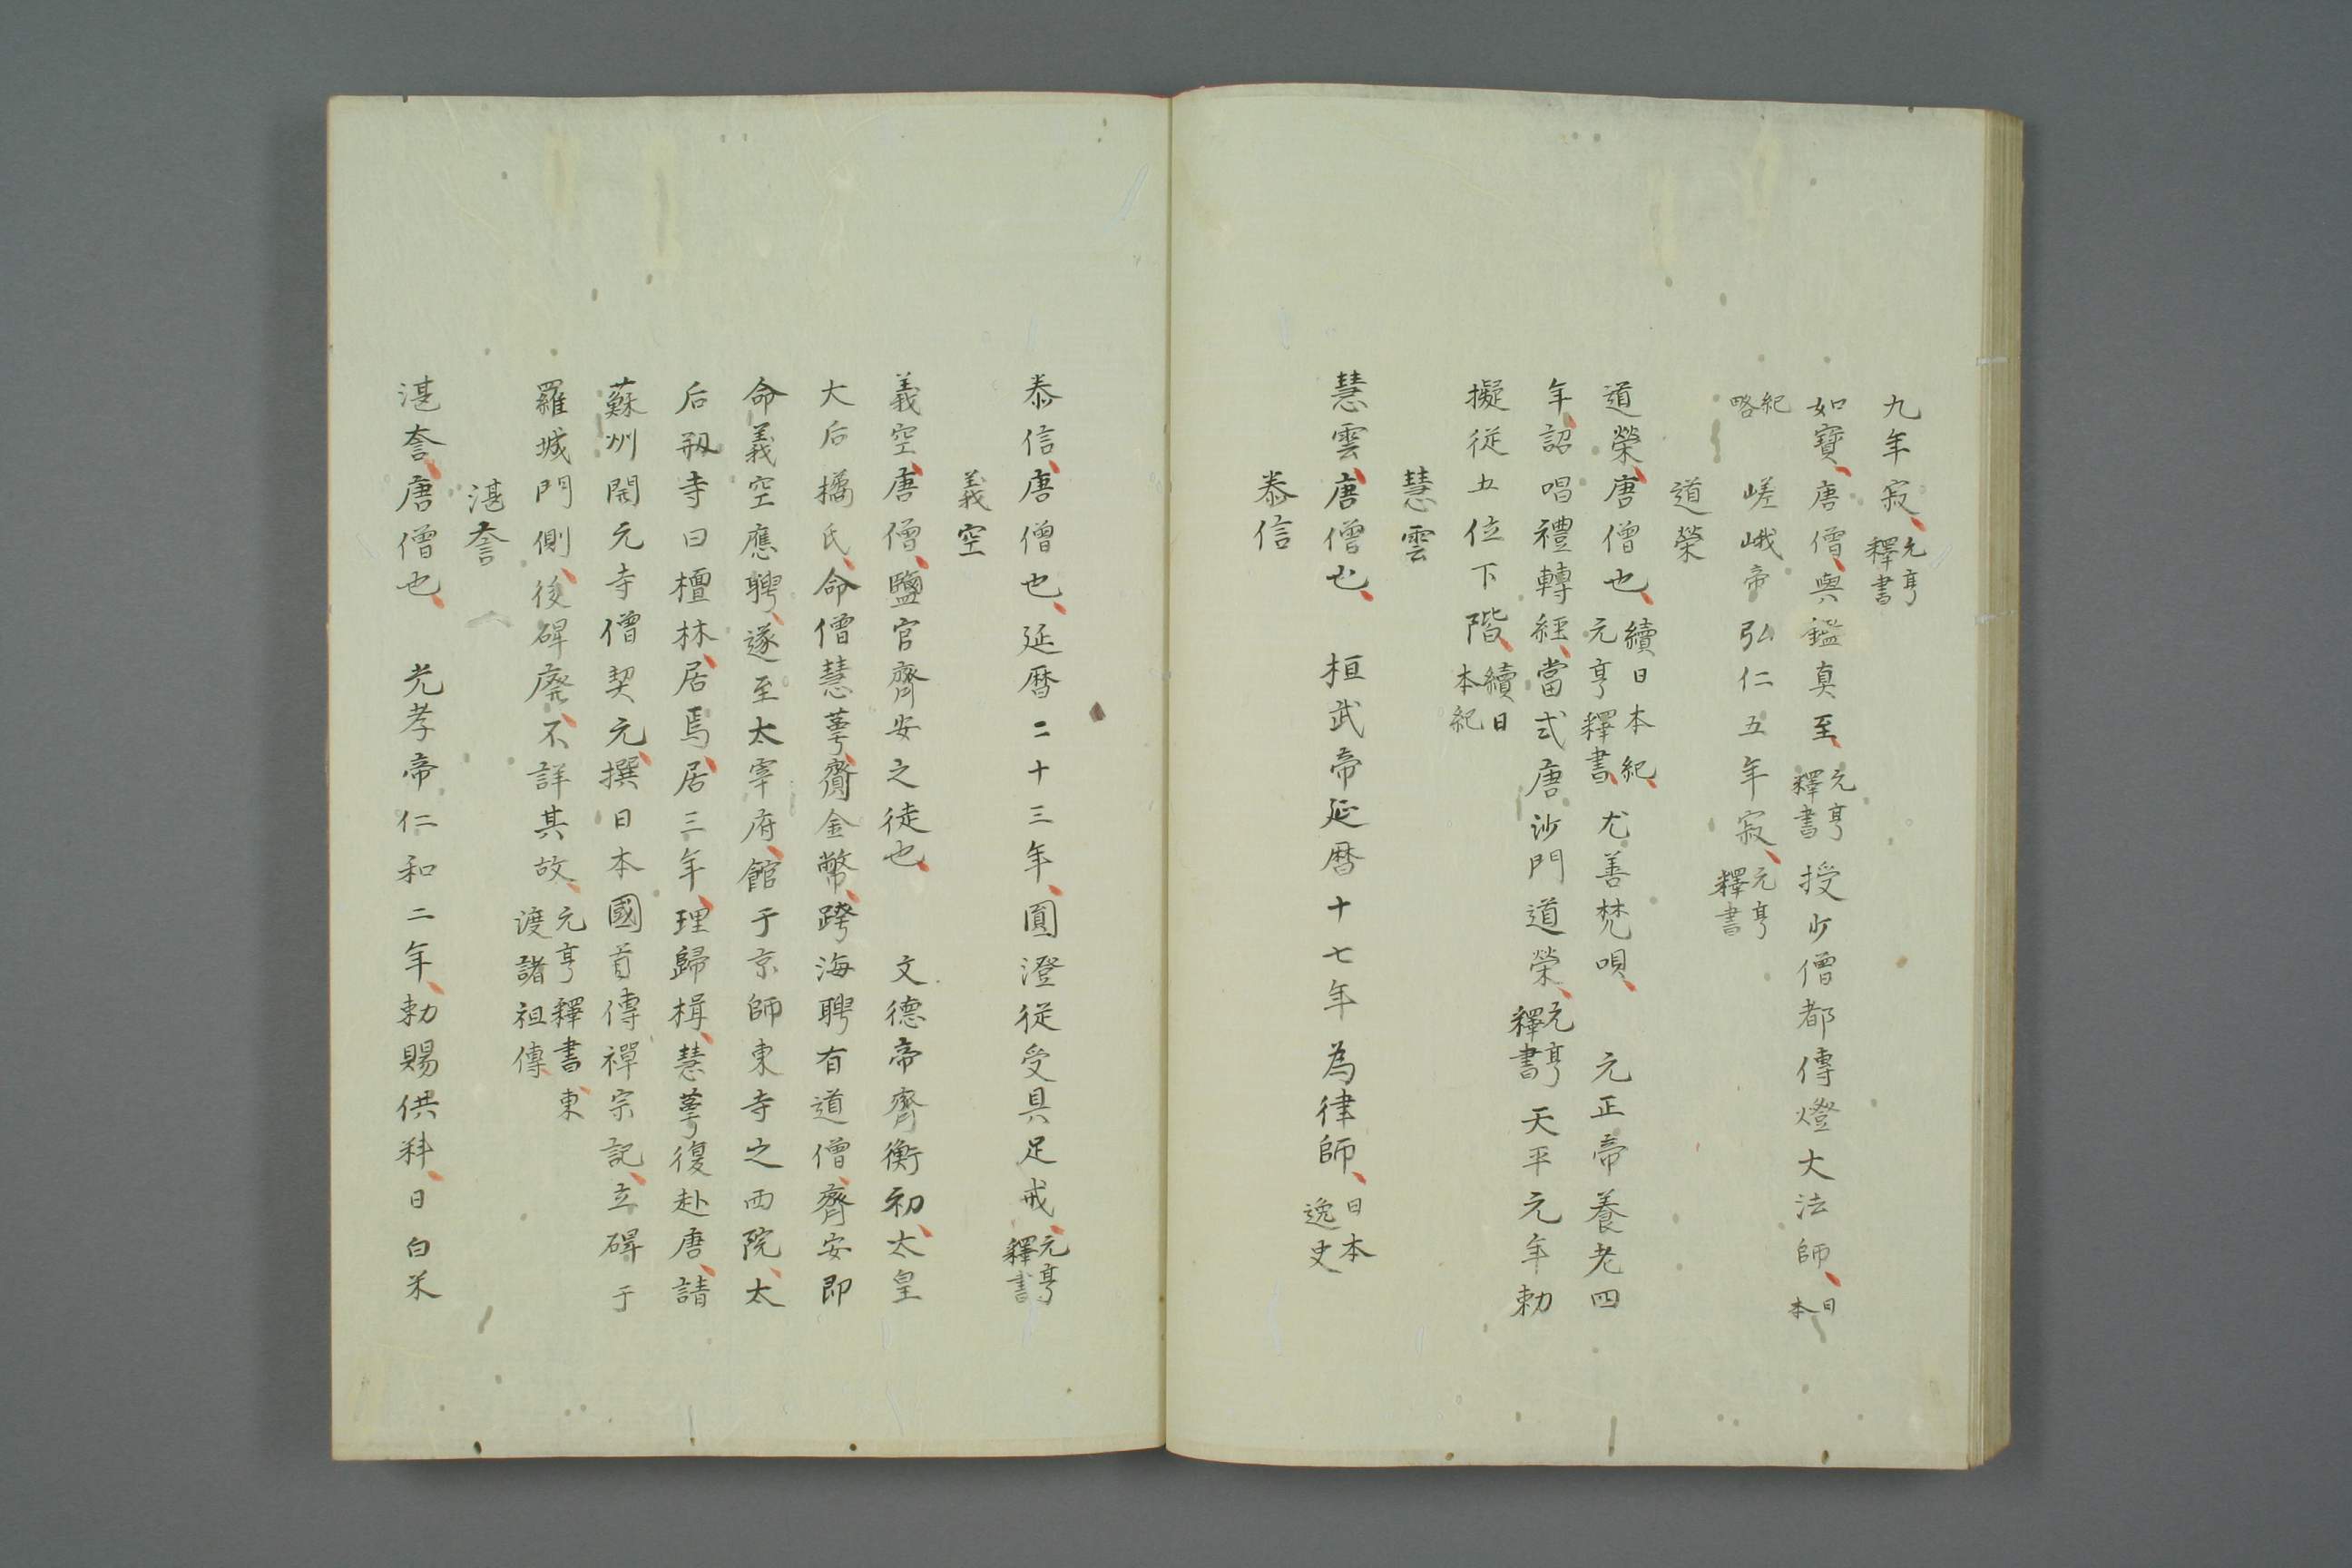 九年寂、元亨釋書
如寶、唐僧、與鑑真至、元亨釋書 授少僧都傳燈大法師、日本
紀略 嵯峨帝弘仁五年寂、元亨釋書
道榮
道榮、唐僧也、續日本紀、元亨釋書、尤善梵唄、 元正帝養老四
年、詔唱禮轉經、當式唐沙門道榮、元亨釋書 天平元年勅
擬從五位下階、續日本紀
慧雲
慧雲、唐僧也、 桓武帝延暦十七年為律師、日本逸史
泰信
泰信、唐僧也、延暦二十三年、圓澄從受具足戒、元亨釋書
義空
義空、唐僧、鹽官齊安之徒也、 文德帝齊衡初、太皇
大后橘氏、命僧慧萼、齎金幣、跨海聘有道僧、齊安即
命義空應聘、遂至太宰府、館于京師東寺之西院、太
后刱寺曰檀林、居焉、居三年、理歸楫、慧萼復赴唐、請
蘇州開元寺僧契元、撰日本國首傳禪宗記、立碑于
羅城門側、後碑廃、不詳其故、元亨釋書、東渡諸祖傳、
湛誉
湛誉、唐僧也、 光孝帝仁和二年、勅賜供料、日白米